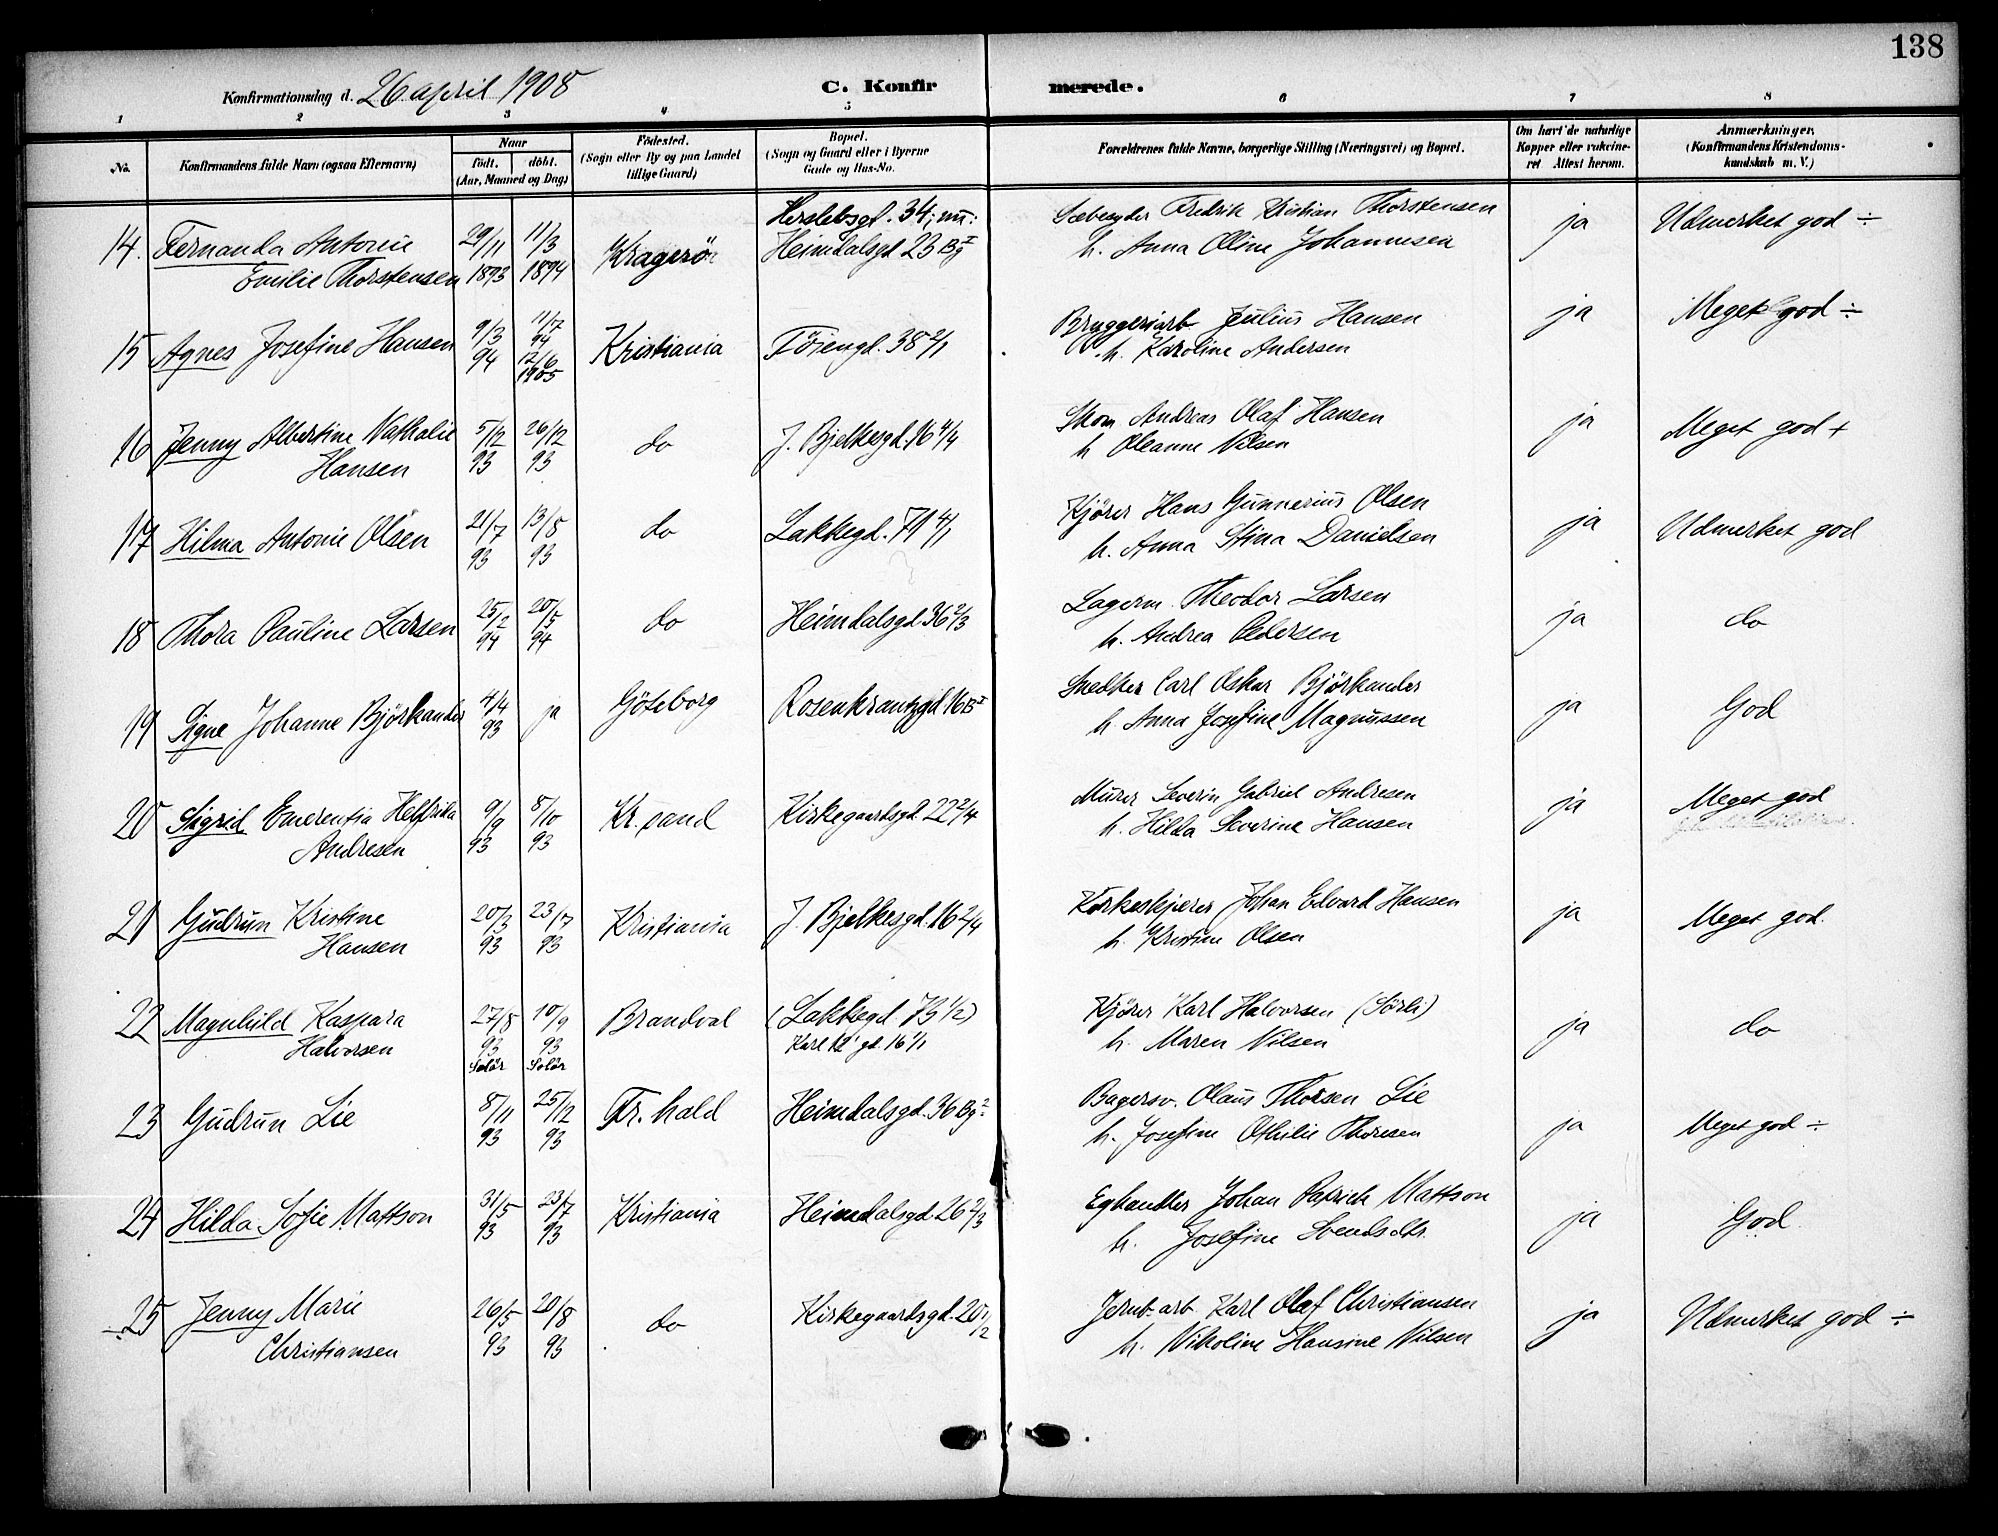 138
Konfirmationsdag d. 26 april 1908
C. Konfir merede.
1 2 3 4 5 6 7 8
No.
Konfirmandens fulde Navn (ogsaa Efternavn)
Naar
født. døbt.
(Aar, Maaned og Dag)
Fødested.
(Sogn eller By og paa Landet
tillige Gaard)
Bopæl.
(Sogn og Gaard eller i Byerne
Gade og Hus-No.
Forældrenes fulde Navne, borgerlige Stilling (Næringsvei) og Bopæl.
Om havt de naturlige
Kopper eller vakcine-
ret Attest herom.
Anmærkninger,
(Konfirmandens Kristendoms-
kundskab m. V.)
14. Fernanda Antonie
Emilie Thorstensen
29/11 1893
11/3 1894
Kragerø
Herslebsgd. 34; nu:
Heimdalsgd 23 Bg I
Fredrik Kristian Thorstensen
h. Anna Oline Johannesen
ja
Udmerket god ÷
15 Agnes Josefine Hansen
9/3 94
11/7 94
12/6 1905
Kristiania
Tøiengd. 38 2/1
Bryggeriarb. Julius Hansen
h. Karoline Andersen
ja
Meget god ÷
16 Jenny Albertine Nathalie
Hansen
5/12 93
26/12 93
do
J. Bjelkesgd. 16 4/4
Skom Andreas Olaf Hansen
h Oleanne Nilsen
ja
Meget god +
17 Hilma Antonie Olsen
21/7 93
13/8 93
do
Lakkegd. 71 4/1
Kjører Hans Gunnerius Olsen
h. Anna Stina Danielsen
ja
Udmerket god
18 Thora Pauline Larsen
25/2 94
20/5 94
do
Heimdalsgd 36 2/3
Lagerm. Theodor Larsen
h. Andrea Pedersen
ja
do
19 Signe Johanne Björkander
4/4 93
ja
Göteborg
Rosenkrantzgd 16 B I
Snedker Carl Oskar Björkander
h. Anna Josefine Magnussen
ja
God
20 Sigrid Emerentia Helfrida
Andresen
9/9 93
8/10 93
Kr.sand
Kirkegaardsgd. 22 2/4
Murer Severin Gabriel Andresen
h. Hilda Severine Hansen
ja
Meget god
21 Gudrun Kristine
Hansen
20/3 93
23/7 93
Kristiania
J. Bjelkesgd. 16 2/4
Korkeskjærer Johan Edvard Hansen
h. Kristine Olsen
ja
Meget god.
22 Magnhild Kaspara
Halvorsen
27/8 93 Solør
10/9 93 Solør
Brandval
(Lakkegd. 73 1/2)
Karl XII gd. 16 1/1
Kjører Karl Halvorsen (Sørli)
h. Maren Nilsen
ja
do
23 Gudrun Lie
8/11 93
25/12 93
Fr.hald
Heimdalsgd. 36 Bg 2
Bagersv. Olaus Thorsen Lie
h. Josefine Othilie Thoresen
ja
Meget god ÷
24 Hilda Sofie Mattson
31/5 93
23/7 93
Kristiania
Heimdalsgd. 26 2/3
Eghandler Johan Patrick Mattson
h. Josefine Svendsdtr.
ja
God.
25 Jenny Marie
Christiansen
26/5 93
20/8 93
do
Kirkegaardsgd. 20 1/2
Jernb. arb. Karl Olaf Christiansen
h. Nikoline Hansine Nilsen
ja
Udmerket god ÷